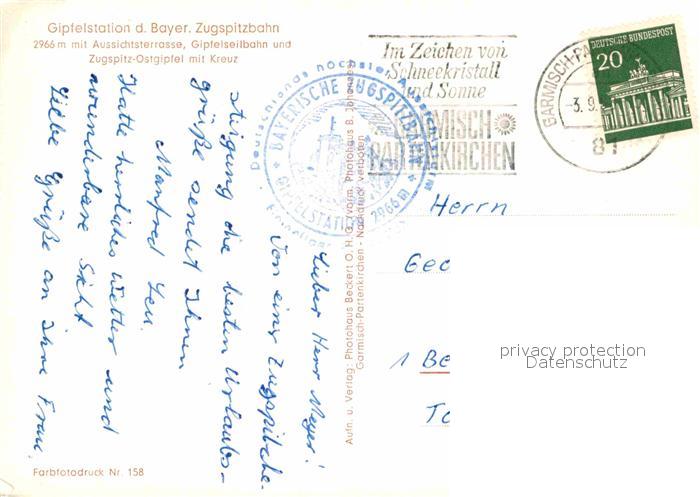 Gipfelstation d. Bayer. Zugspitzbahn
2966 m mit Aussichtsterrasse, Gipfelseilbahn und
Zugspitz-Ostgipfel mit Kreuz
Lieber Herr Meyer!
Von einer Zugspitzbe-
steigung die besten Urlaubs-
grüße sendet Ihnen
Manfred Leu.
Hatte herrliches Wetter und
wunderbare Sicht
Liebe Grüße an Ihre Frau.
Farbfotodruck Nr. 158
Aufn. u. Verlag: Photohaus Beckert O. H. G. vorm. Photohaus B. Johannes
Garmisch-Partenkirchen - Nachdruck verboten
Deutschlands höchster
BAYERISCHE ZUGSPITZBAHN
GIPFELSTATION 2966 m
Im Zeichen von
Schneekristall
und Sonne
GARMISCH
PARTENKIRCHEN
GARMISCH-PA
-3.9.
81
DEUTSCHE BUNDESPOST
20
Herrn
Geo
1 Be
To
privacy protection
Datenschutz